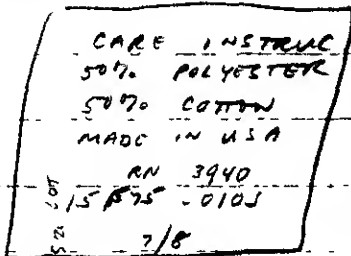 CARE INSTRUC
50% POLYESTER
50% COTTON
MADE IN USA
RN 3940
LOT
7/8